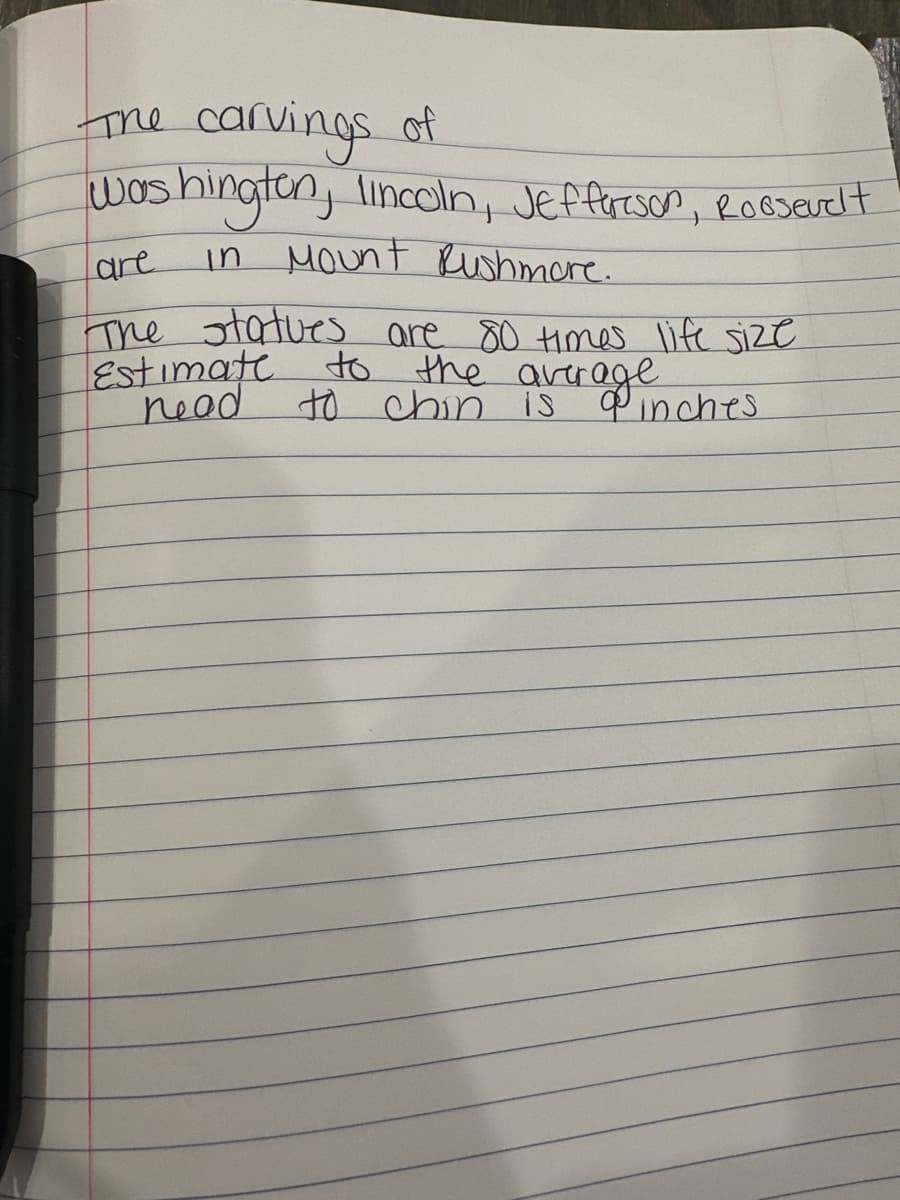 The carvings of
Washington, lincoln, Jefferson, Roosevelt
are in Mount Rushmore.
The statues are 80 times life size
Estimate to the average
head to chin is 9 inches